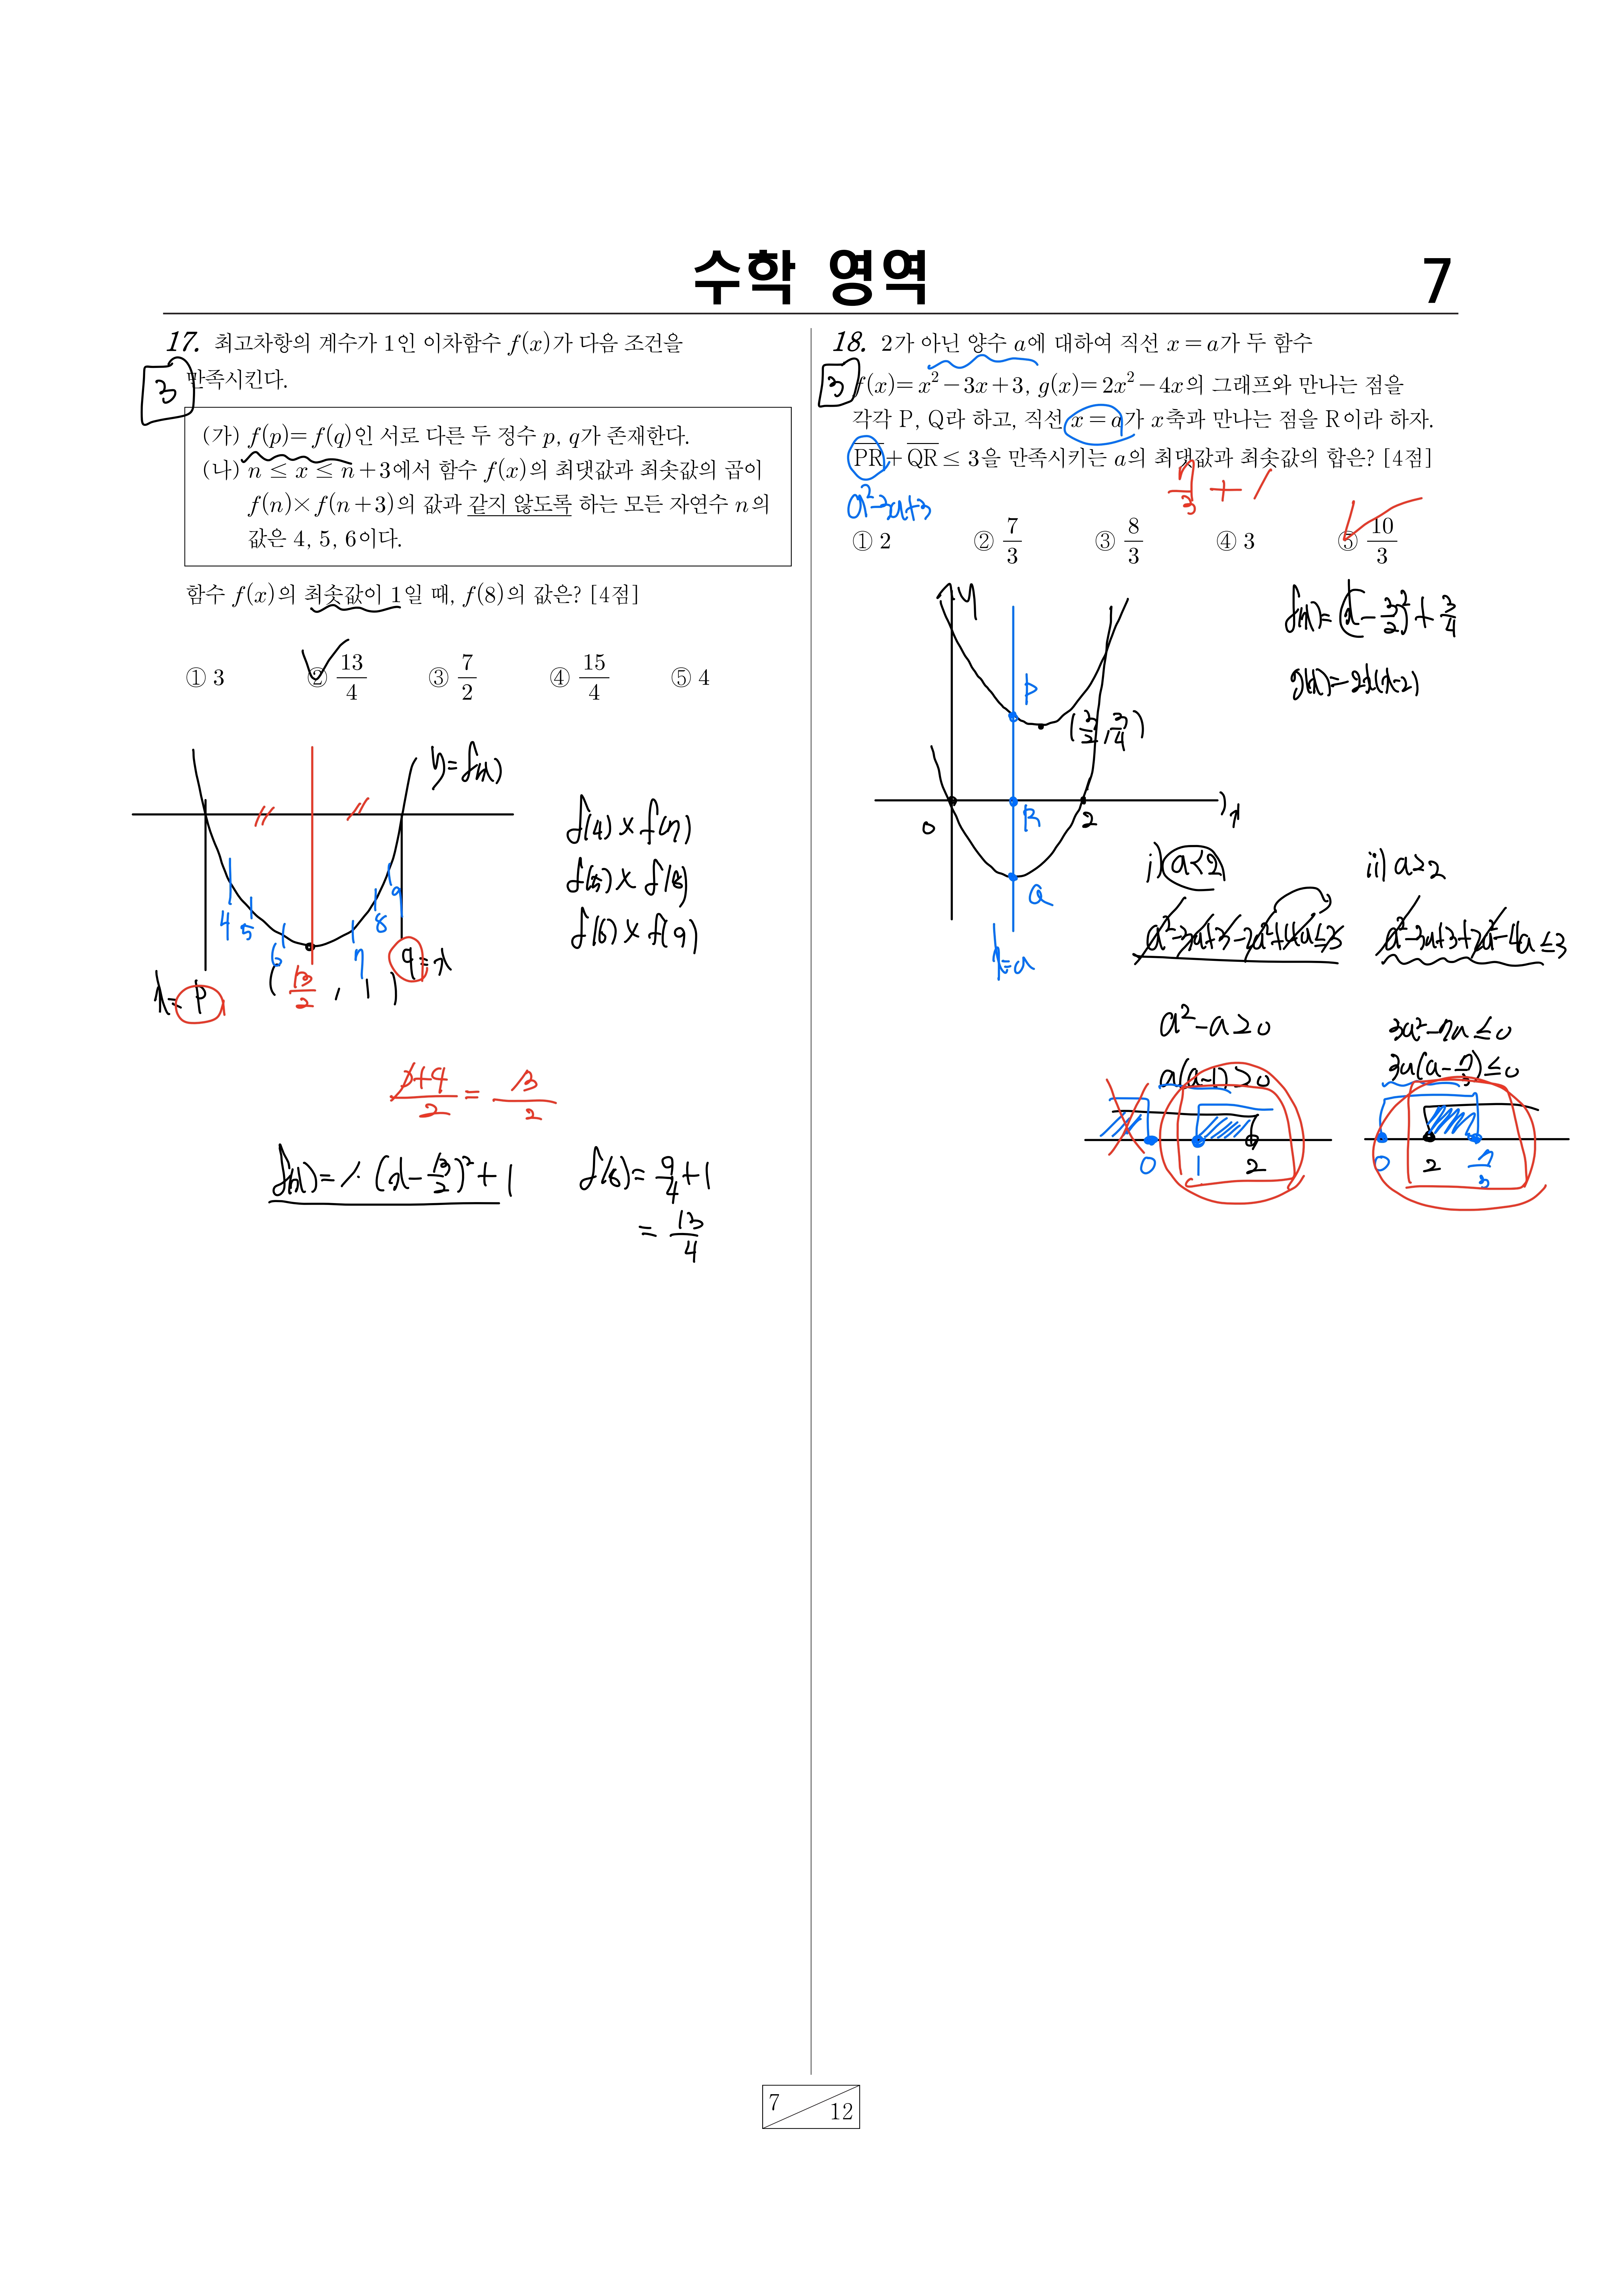 수학 영역
7
17. 최고차항의 계수가 1인 이차함수 f(x)가 다음 조건을
만족시킨다.
3
(가) f(p)=f(q)인 서로 다른 두 정수 p, q가 존재한다.
(나) n ≤ x ≤ n+3에서 함수 f(x)의 최댓값과 최솟값의 곱이
f(n)×f(n+3)의 값과 같지 않도록 하는 모든 자연수 n의
값은 4, 5, 6이다.
함수 f(x)의 최솟값이 1일 때, f(8)의 값은? [4점]
① 3 ② 13/4 ③ 7/2 ④ 15/4 ⑤ 4
y=f(x)
f(4)×f(7)
f(5)×f(8)
f(6)×f(9)
4 5 6 7 8 9
x=p (13/2, 1) q=x
p+q/2 = 13/2
f(x)=1·(x-13/2)²+1
f(8)=9/4+1
=13/4
18. 2가 아닌 양수 a에 대하여 직선 x=a가 두 함수
3
f(x)=x²-3x+3, g(x)=2x²-4x의 그래프와 만나는 점을
각각 P, Q라 하고, 직선 x=a가 x축과 만나는 점을 R이라 하자.
PR+QR ≤ 3을 만족시키는 a의 최댓값과 최솟값의 합은? [4점]
a²-3a+3
7/3+1
① 2 ② 7/3 ③ 8/3 ④ 3 ⑤ 10/3
y
f(x)=(x-3/2)²+3/4
P
g(x)=2x(x-2)
(3/2, 3/4)
0 R 2 x
Q
x=a
i) a<2
ii) a>2
a²-3a+3-2a²+4a≤3
a²-3a+3+2a²-4a≤3
a²-a≥0
3a²-7a≤0
a(a-1)≥0
3a(a-7/3)≤0
0 1 2
0 2 7/3
7
12